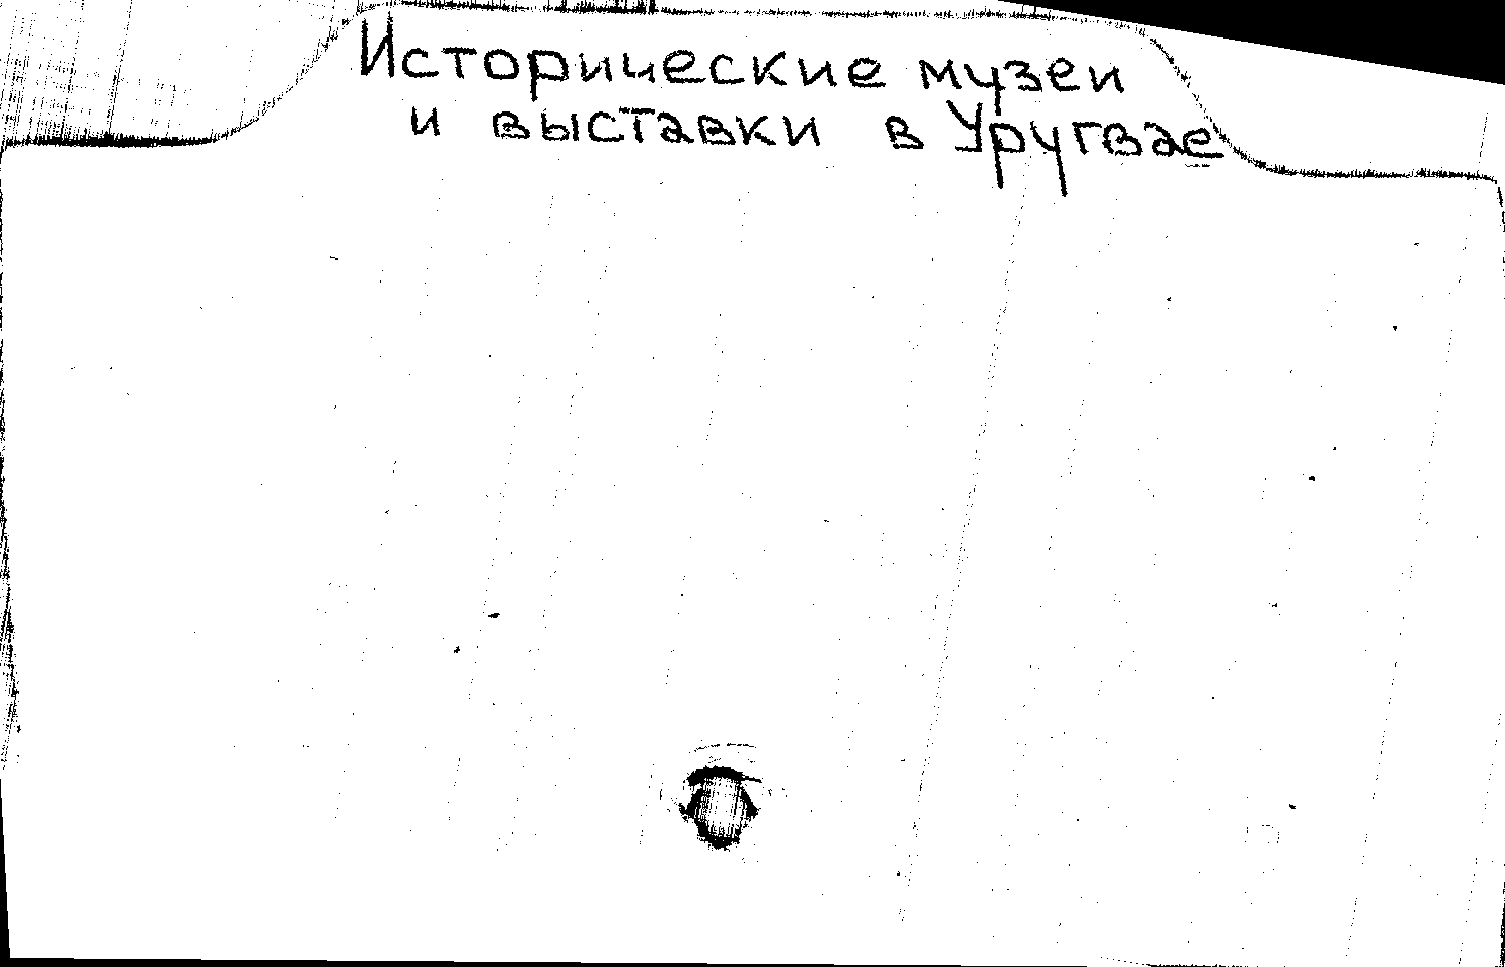 Исторические музеи
и выставки в Уругвае